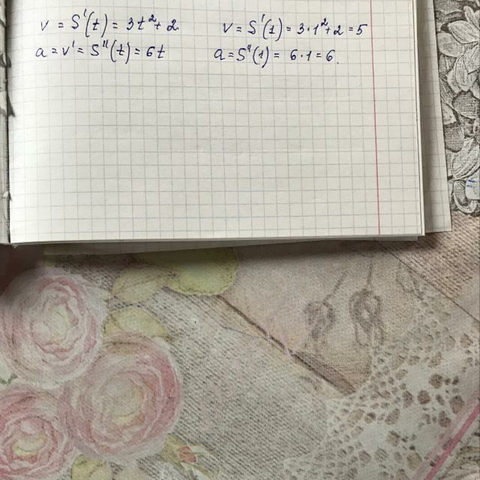 v = S'(t) = 3t²+2 v = S'(1) = 3·1²+2 = 5
a = v' = S''(t) = 6t a = S''(1) = 6·1 = 6.